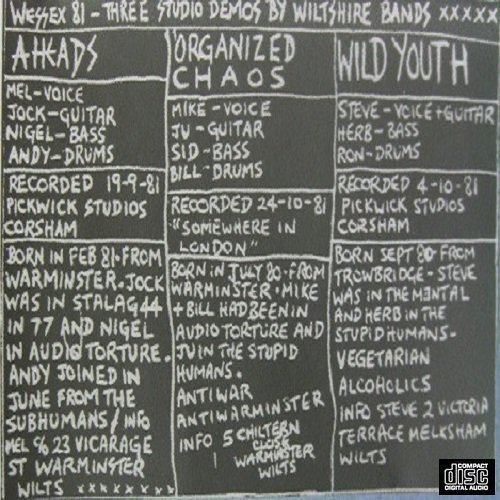 WESSEX 81 - THREE STUDIO DEMOS BY WILTSHIRE BANDS XXXXX
A-HEADS
MEL-VOICE
JOCK-GUITAR
NIGEL-BASS
ANDY-DRUMS
RECORDED 19-9-81
PICKWICK STUDIOS
CORSHAM
BORN IN FEB 81. FROM
WARMINSTER. JOCK
WAS IN STALAG 44
IN 77 AND NIGEL
IN AUDIO TORTURE.
ANDY JOINED IN
JUNE FROM THE
SUBHUMANS/INFO
MEL % 23 VICARAGE
ST WARMINSTER
WILTS XXXXXXXX
ORGANIZED
CHAOS
MIKE-VOICE
JU-GUITAR
SID-BASS
BILL-DRUMS
RECORDED 24-10-81
"SOMEWHERE IN
LONDON"
BORN IN JULY 80. FROM
WARMINSTER. MIKE
+ BILL HAD BEEN IN
AUDIO TORTURE AND
JU IN THE STUPID
HUMANS.
ANTIWAR
ANTIWARMINSTER
INFO 5 CHILTERN
CLOSE
WARMINSTER
WILTS
WILD YOUTH
STEVE-VOICE+GUITAR
HERB-BASS
RON-DRUMS
RECORDED 4-10-81
PICKWICK STUDIOS
CORSHAM
BORN SEPT 80. FROM
TROWBRIDGE-STEVE
WAS IN THE MENTAL
AND HERB IN THE
STUPID HUMANS.
VEGETARIAN
ALCOHOLICS
INFO STEVE 2 VICTORIA
TERRACE MELKSHAM
WILTS
COMPACT
disc
DIGITAL AUDIO